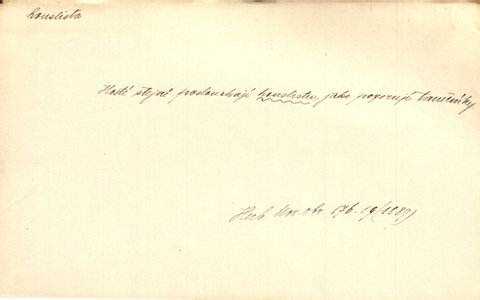 houslista
Hosté stejně poslouchají houslistu, jako pozorují tanečníky.
Herb Mor. obr. 176. 19 (1889)